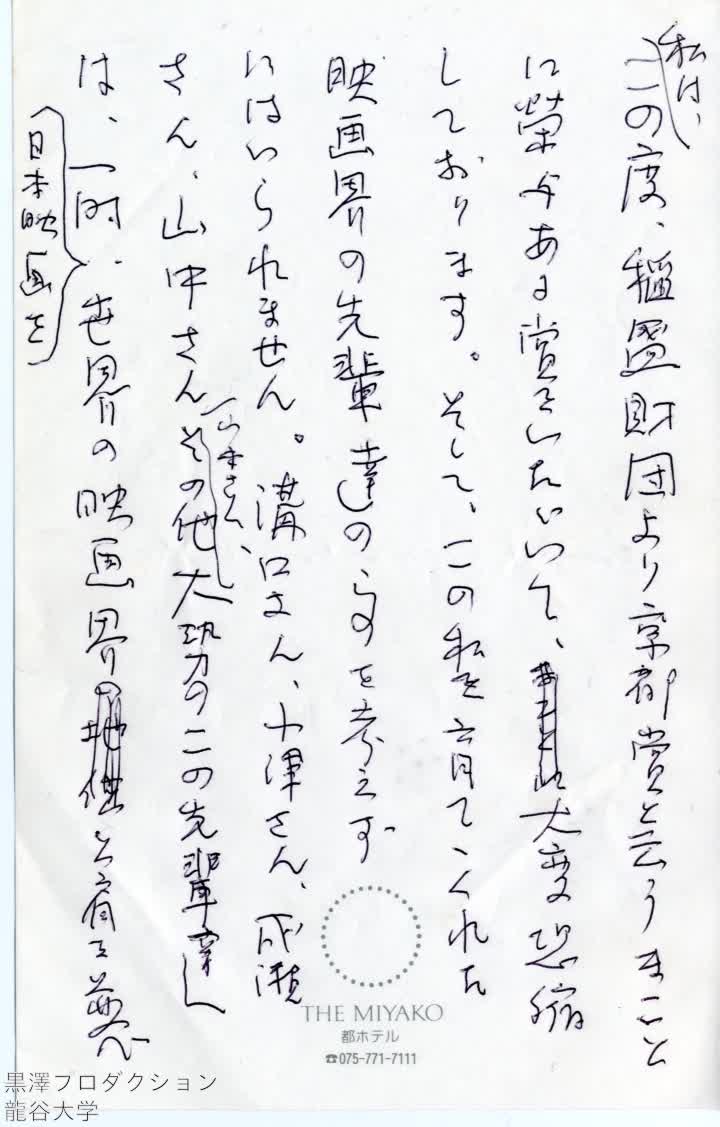 私は、
この度、稲盛財団より京都賞と云うまこと
に榮与ある賞をいただいて、大変恐縮
しております。そして、この私を育てくれた
映画界の先輩達の事を考えず
にはいられません。溝口さん、小津さん、成瀬
さん、山中さんその他大勢のこの先輩達
山本さん、
は、一時、世界の映画界と肩を並べ
（日本映画を）
THE MIYAKO
都ホテル
☎075-771-7111
黒澤プロダクション
龍谷大学